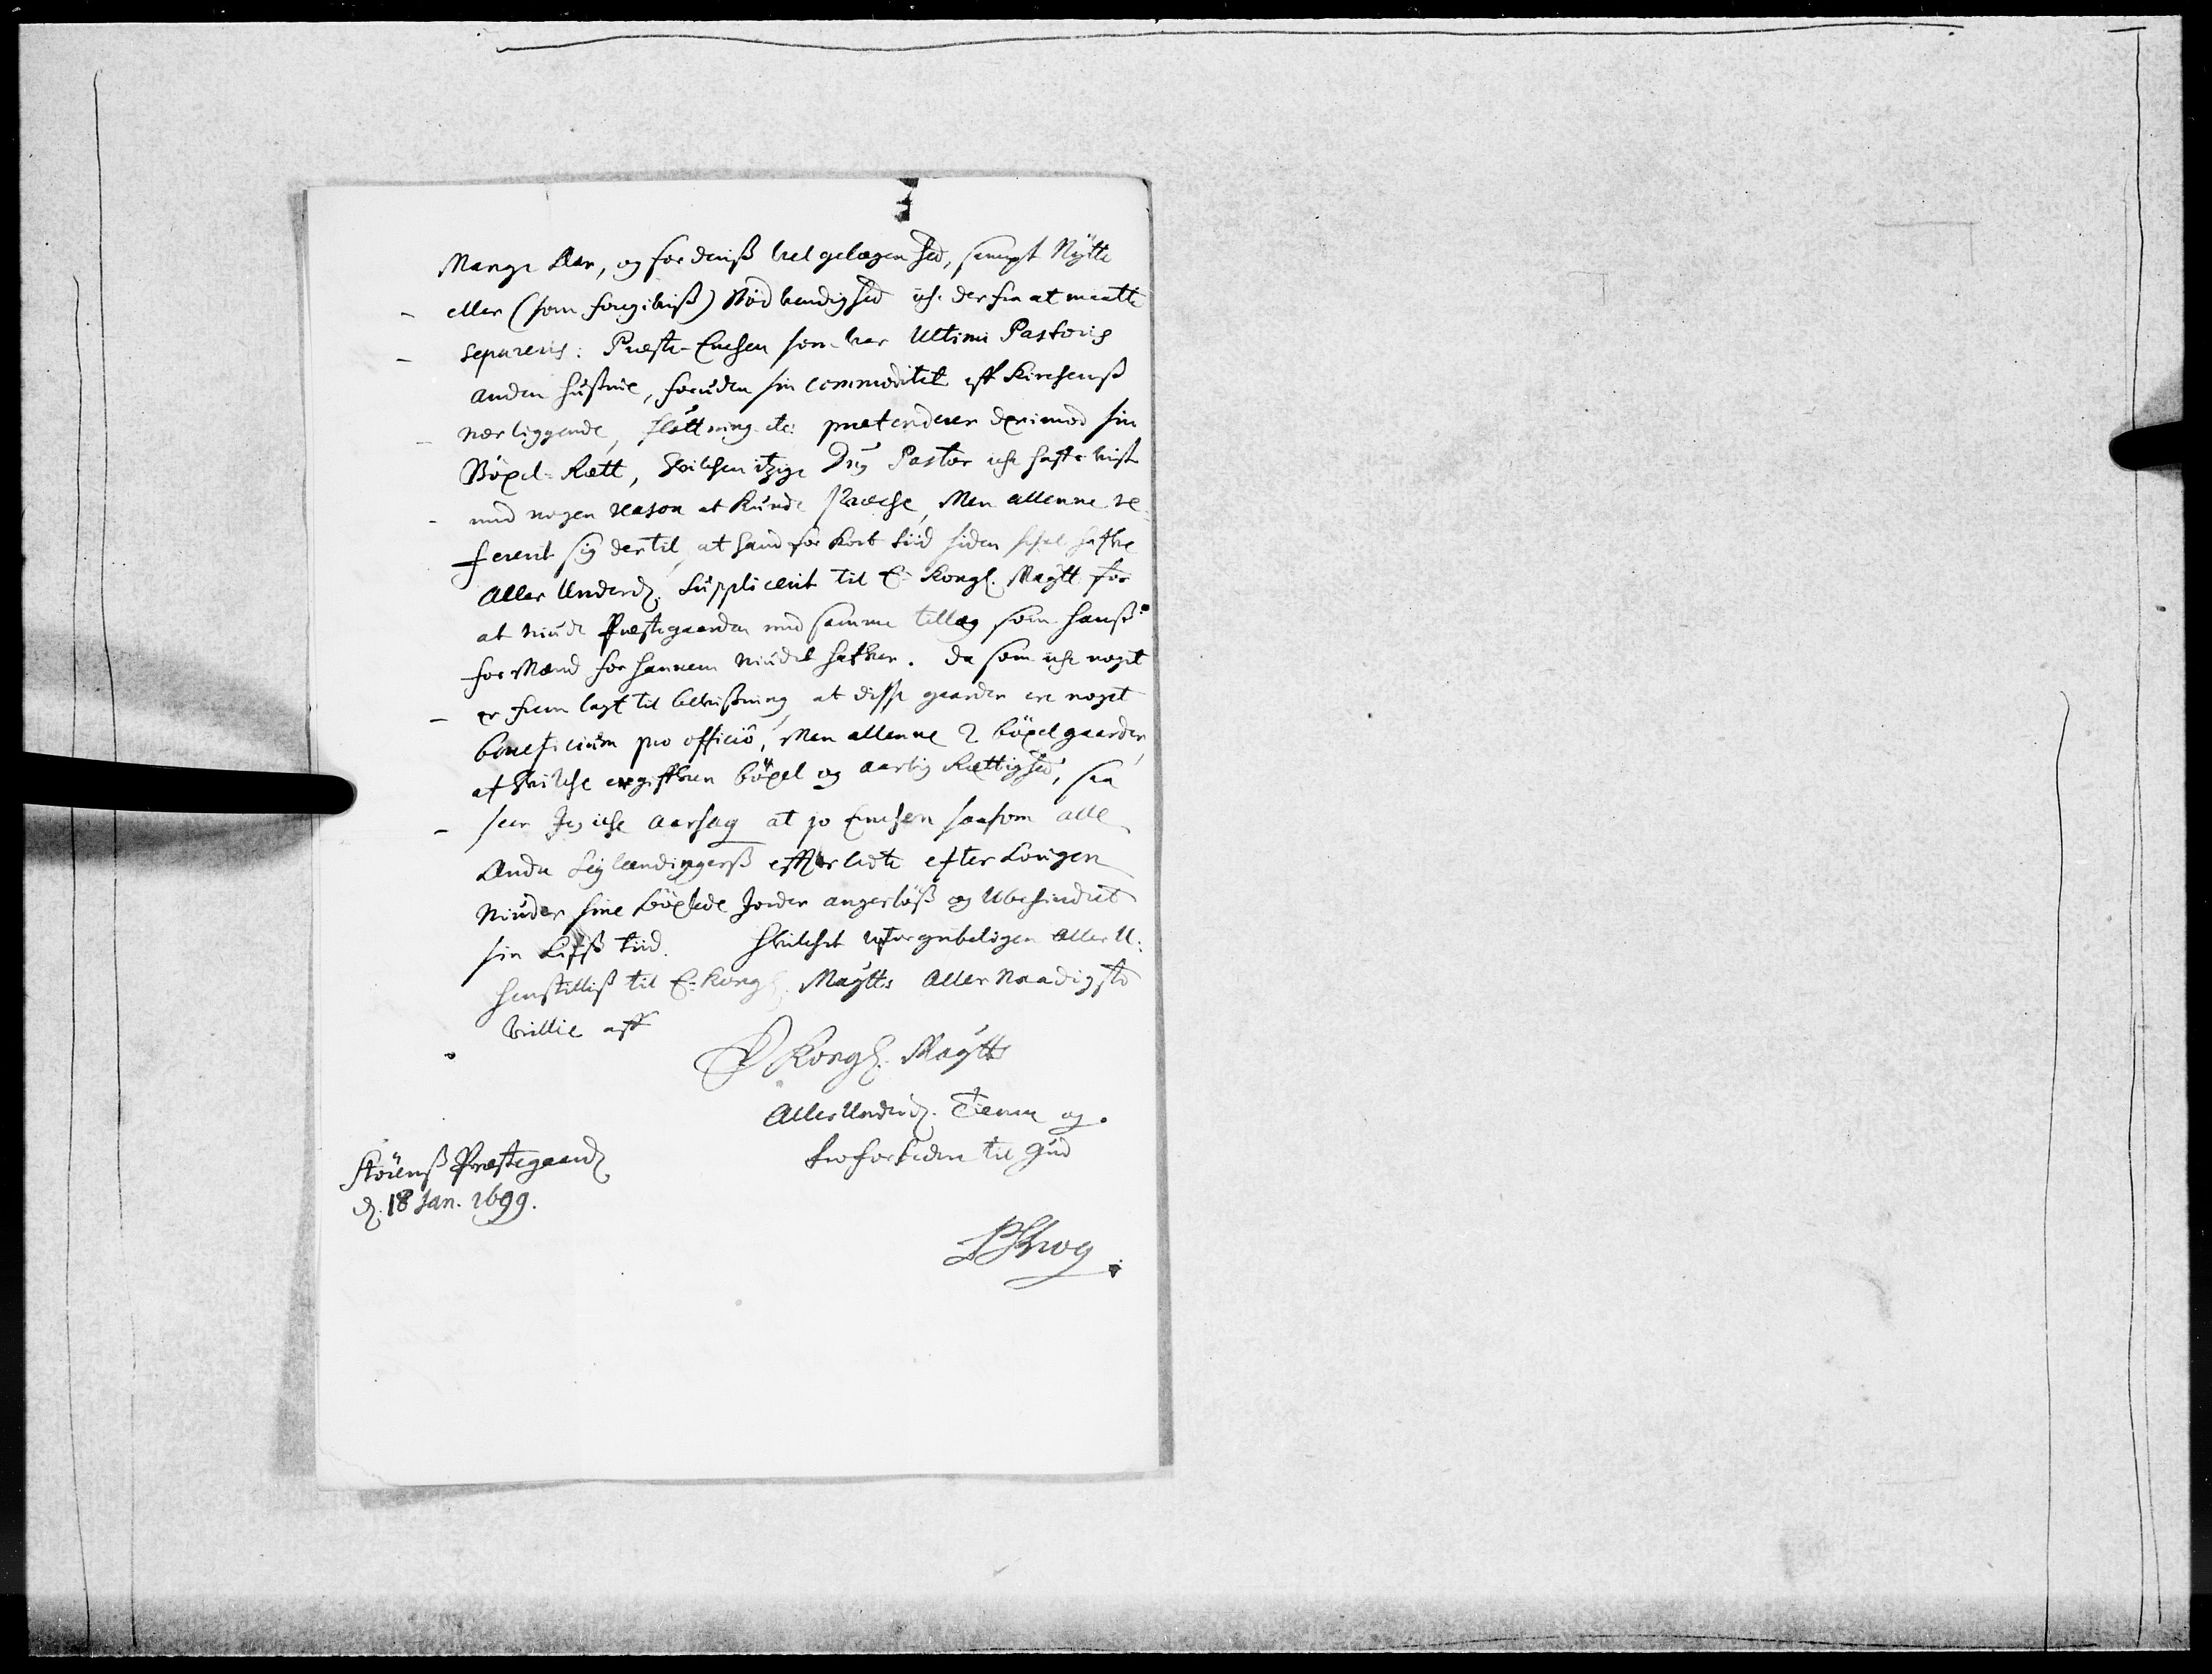 Mange Aar, og for deriß vel gelægenhed, sampt Nÿtte
eller (som foregifviß) Nødvendighed iche der fra at maatte
separeris: Præste-Enchen som var Ultimi Pastoris
anden hustrue, foruden sin commoditet aff Kirchenß
nærliggende, flöttning etc: prætenderer derimod sin
Böxel-Rætt, hvilchen itzige Dnj Pastor iche hafr vist
med nogen reason at kunde svæche, Men allenne re-
ferent sig dertil, at hand for kort tiid siden schal hafve
Aller Underd. Supplicerit til E. Kongl. Maÿtt for
at niude Præstegaarden med samme tillæg som hanß
forMænd for hannem niudet hafver. Da som iche noget
er frem lagt til beviißning, at disse gaarder ere noget
beneficium pro officio, Men allenne 2 böxelgaarder,
af hvilche er gifven böxel og aarlig Rættighed, saa
seer Jeg iche aarsag at jo Enchen saasom alle
Andre Leylændingerß effterladte efter Lougen
Niuder sine böxlede Jorder angerløß og Ubehindret
sin Lifß tiid. Hvilchet uforgribeligen Aller U:
henstilliß til E. Kongl. Maÿtts Aller Naadigste
Villie aff
E Kongl. Maÿtts
Aller Underd. Tienner og
troforbeder til Gud
Störenß Præstegaard
d. 18 Jan. 1699.